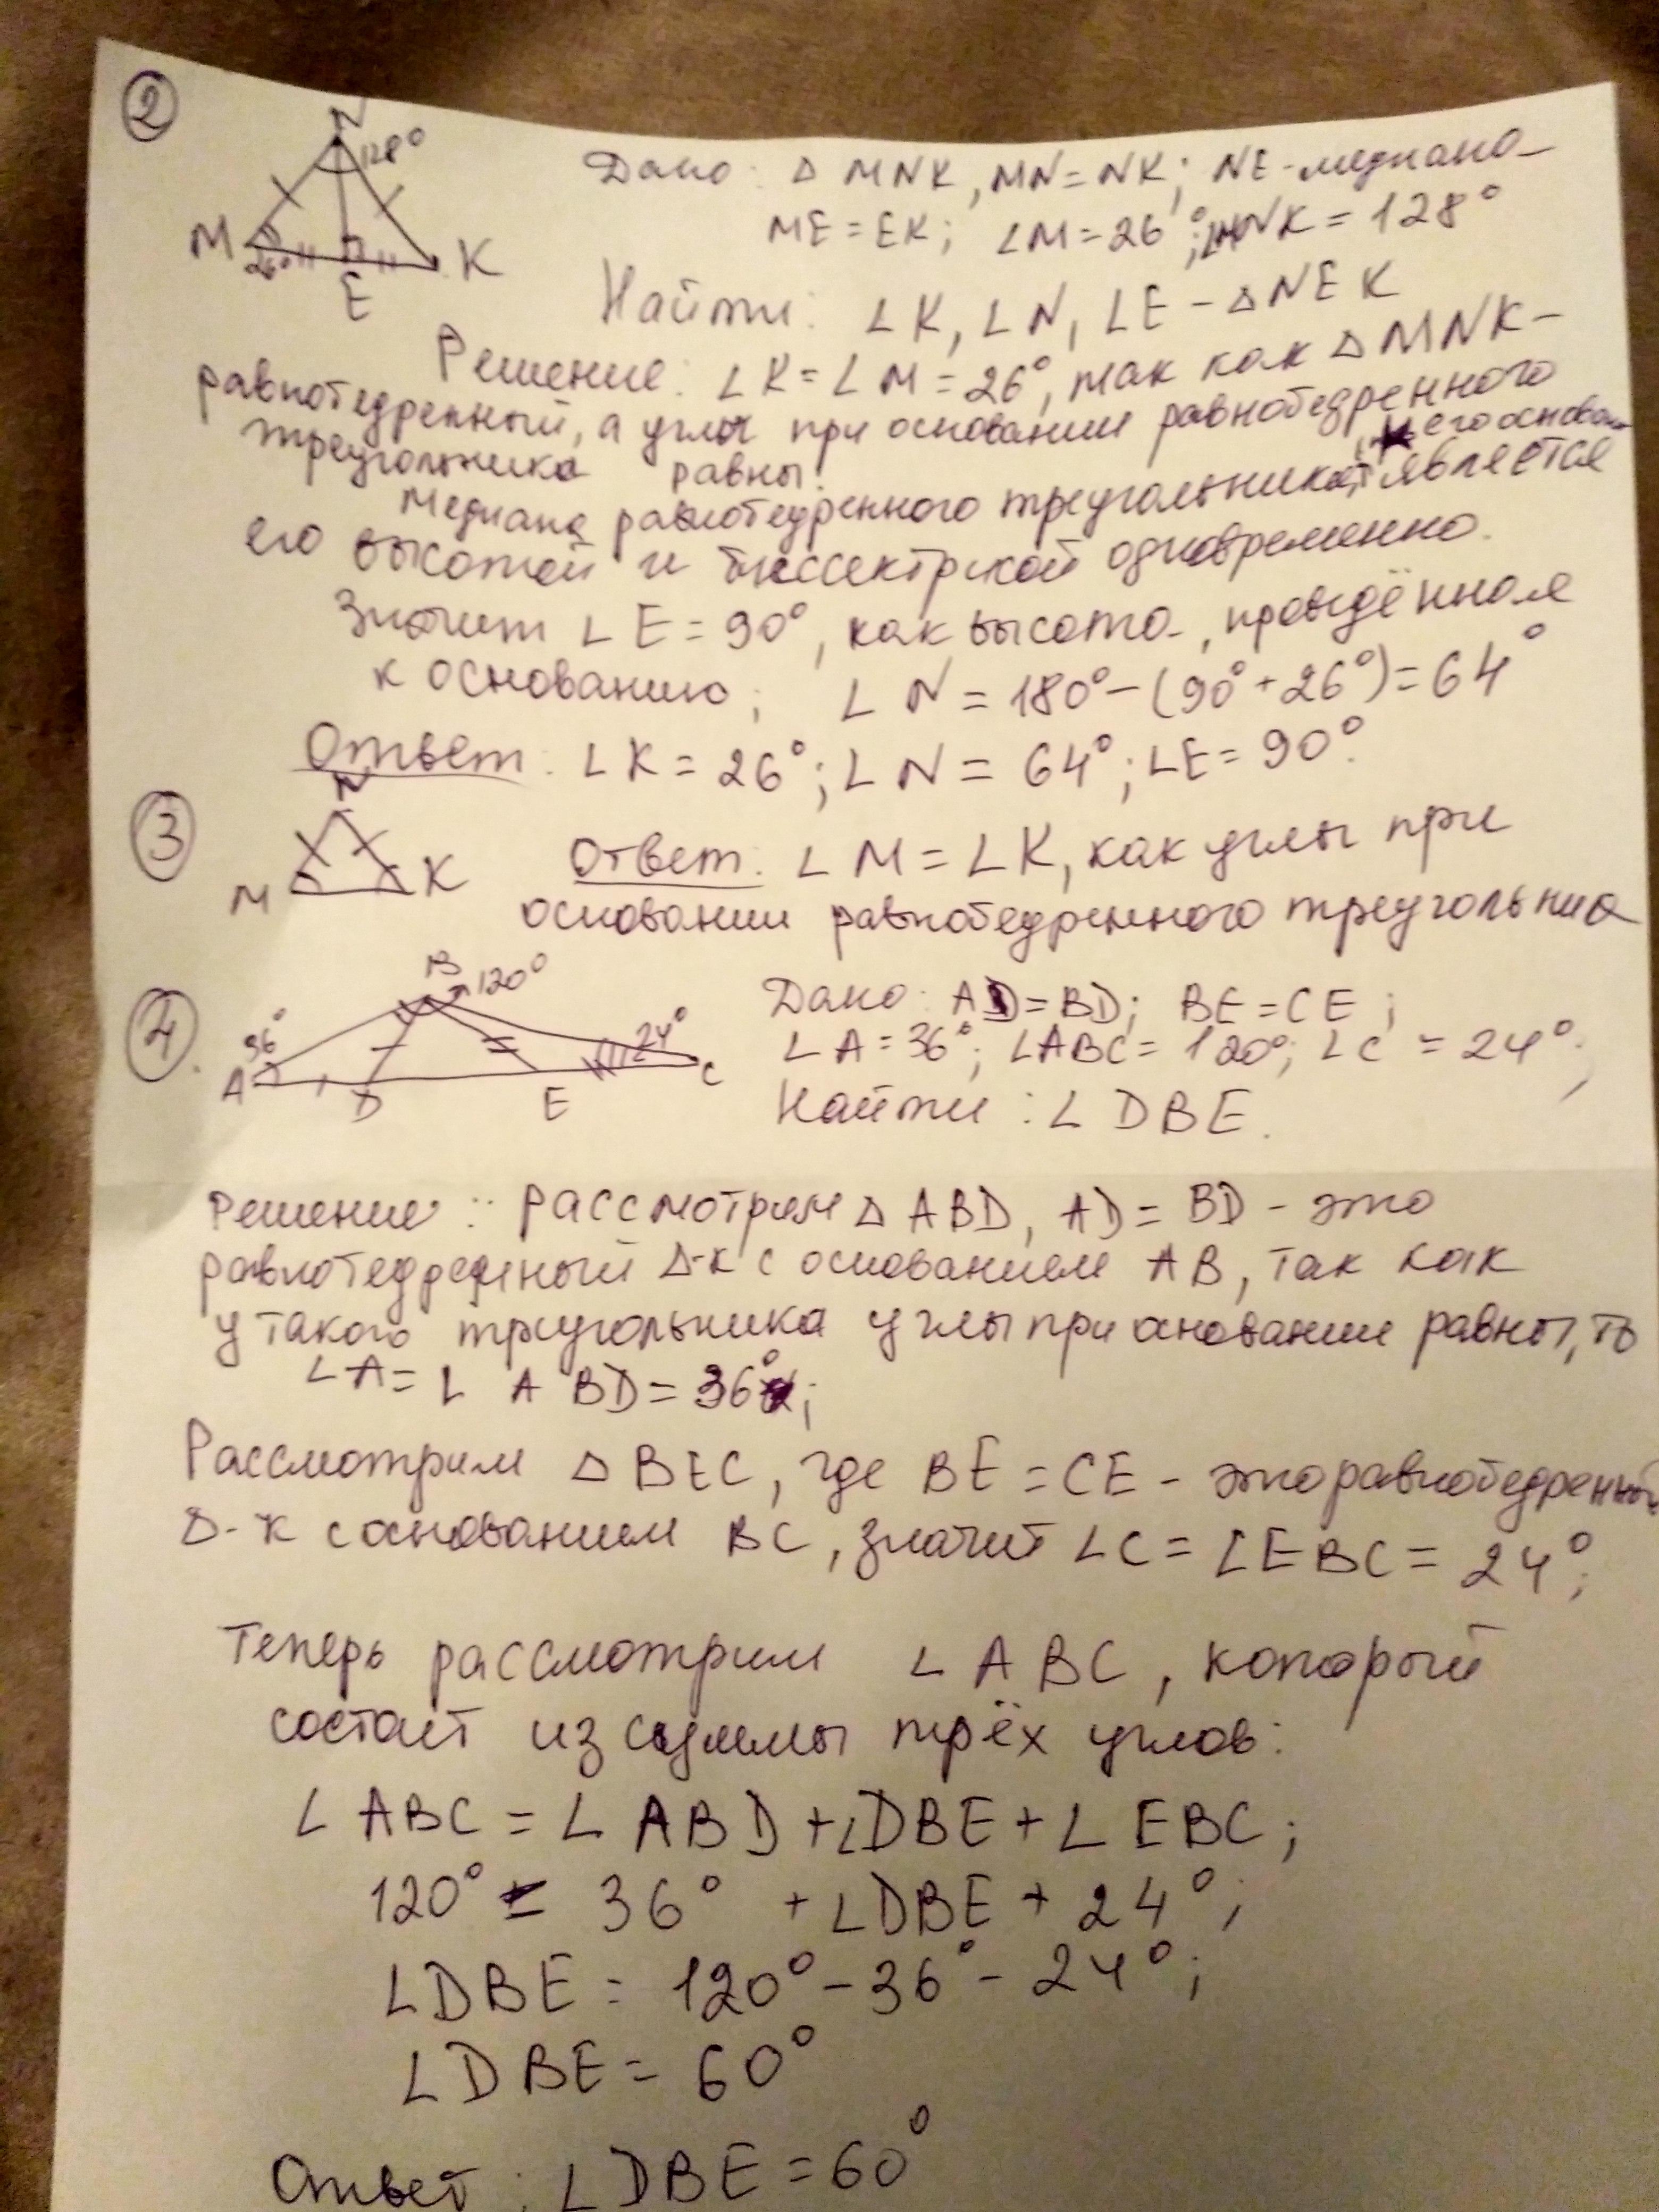 2
N
128°
M
26°
E
K
Дано: Δ MNK, MN = NK; NE - медиана
ME = EK; ∠M = 26°; ∠MNK = 128°
Найти: ∠K, ∠N, ∠E - Δ NEK
Решение: ∠K = ∠M = 26°, так как Δ MNK -
равнобедренный, а углы при основании равнобедренного
треугольника равны.
его основан
Медиана равнобедренного треугольника, является
его высотой и биссектрисой одновременно.
Значит ∠E = 90°, как высота, проведённая
к основанию; ∠N = 180° - (90° + 26°) = 64°
Ответ: ∠K = 26°; ∠N = 64°; ∠E = 90°.
3
N
M
K
Ответ: ∠M = ∠K, как углы при
основании равнобедренного треугольника
4.
B
120°
36°
24°
A
D
E
C
Дано: AD = BD; BE = CE;
∠A = 36°; ∠ABC = 120°; ∠C = 24°;
Найти: ∠DBE.
Решение: Рассмотрим Δ ABD, AD = BD - это
равнобедренный Δ-к с основанием AB, так как
у такого треугольника углы при основании равны, то
∠A = ∠ABD = 36°;
Рассмотрим Δ BEC, где BE = CE - это равнобедренный
Δ-к с основанием BC, значит ∠C = ∠EBC = 24°;
Теперь рассмотрим ∠ABC, который
состоит из суммы трёх углов:
∠ABC = ∠ABD + ∠DBE + ∠EBC;
120° = 36° + ∠DBE + 24°;
∠DBE = 120° - 36° - 24°;
∠DBE = 60°
Ответ: ∠DBE = 60°